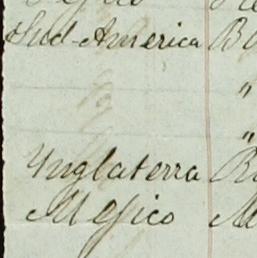 Sud-America Bo
"
"
Ynglaterra R
Mejico M